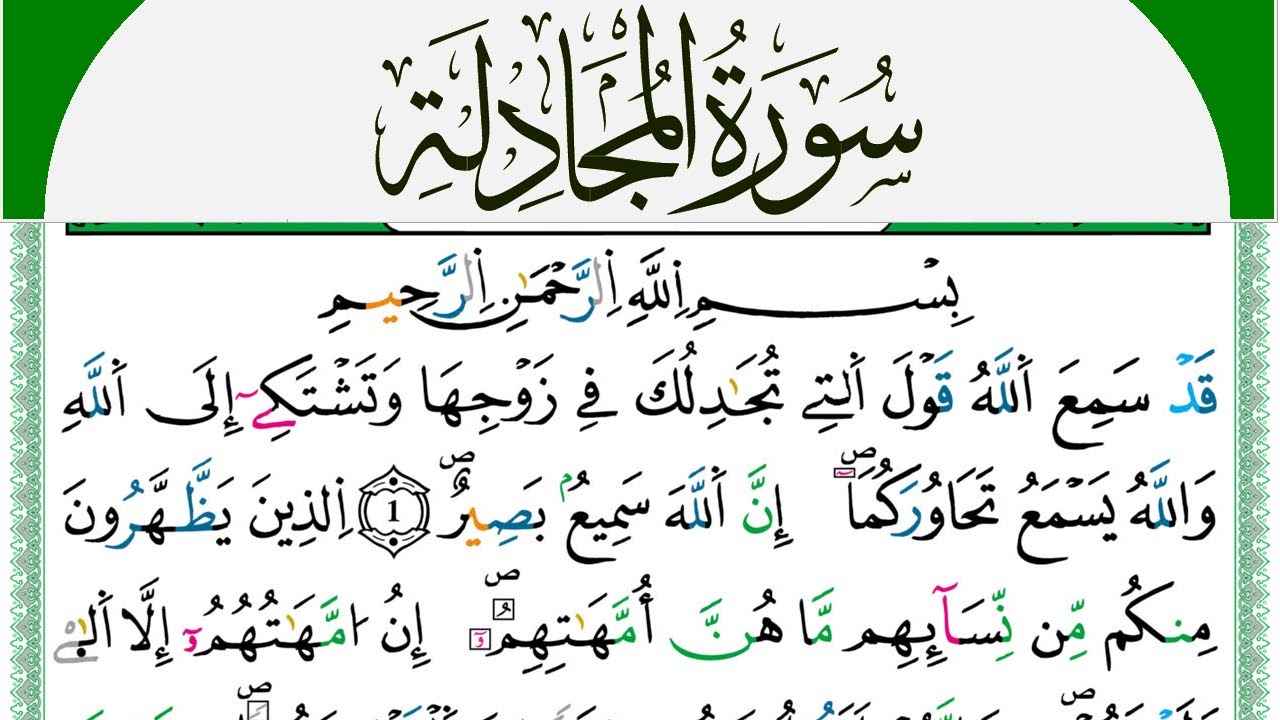 سُورَةُ الْمُجَادِلَةِ
بِسْمِ اِللَّهِ اِلرَّحْمَٰنِ اِلرَّحِيمِ
قَدْ سَمِعَ اَللَّهُ قَوْلَ اَلتِے تُجَٰدِلُكَ فِے زَوْجِهَا وَتَشْتَكِےٓ إِلَى اَللَّهِ
وَاللَّهُ يَسْمَعُ تَحَاوُرَكُمَآ ص إِنَّ اَللَّهَ سَمِيعُۢ بَصِيرٌ ص 1 اِلذِينَ يَظَّهَّرُونَ
مِنكُم مِّن نِّسَآئِهِم مَّا هُنَّ أُمَّهَٰتِهِمُۥٓ ص إِنُ امَّهَٰتُهُمُۥٓ إِلَّا اَلَٰٓےْ